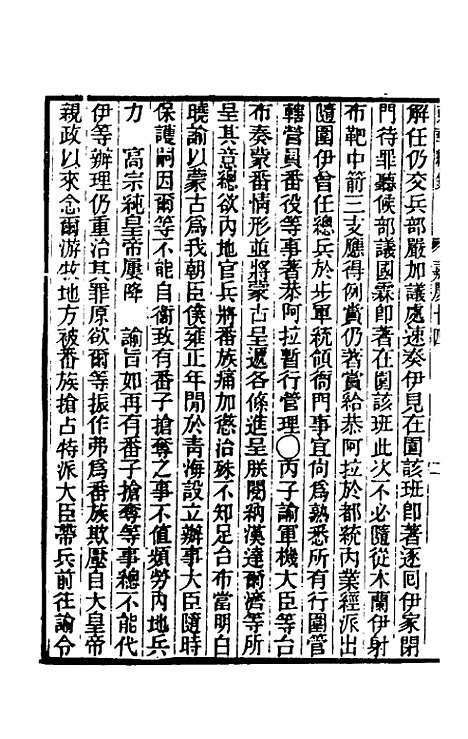 解任仍交兵部嚴加議處速奏伊見在圍該班卽著逐回伊家閉
門待罪聽候部議國霖卽著在圍該班此次不必隨從木蘭伊射
布靶中箭三支應得例賞仍著賞給恭阿拉於都統內業經派出
隨圍伊曾任總兵於步軍統領衙門事宜向爲熟悉所有行圍管
轄營員番役等事著恭阿拉暫行管理〇丙子諭軍機大臣等台
布奏蒙番情形並將蒙古呈遞各條進呈朕閱納漢達爾濟等所
呈其意總欲內地官兵將番族痛加懲治殊不知足台布當明白
曉諭以蒙古爲我朝臣僕雍正年間於靑海設立辦事大臣隨時
保護嗣因爾等不能自衞致有番子搶奪之事不值頻勞內地兵
力　高宗純皇帝屢降　諭旨如再有番子搶奪等事總不能代
伊等辦理仍重治其罪原欲爾等振作弗爲番族欺壓自大皇帝
親政以來念爾游牧地方被番族搶占特派大臣帶兵前往諭令